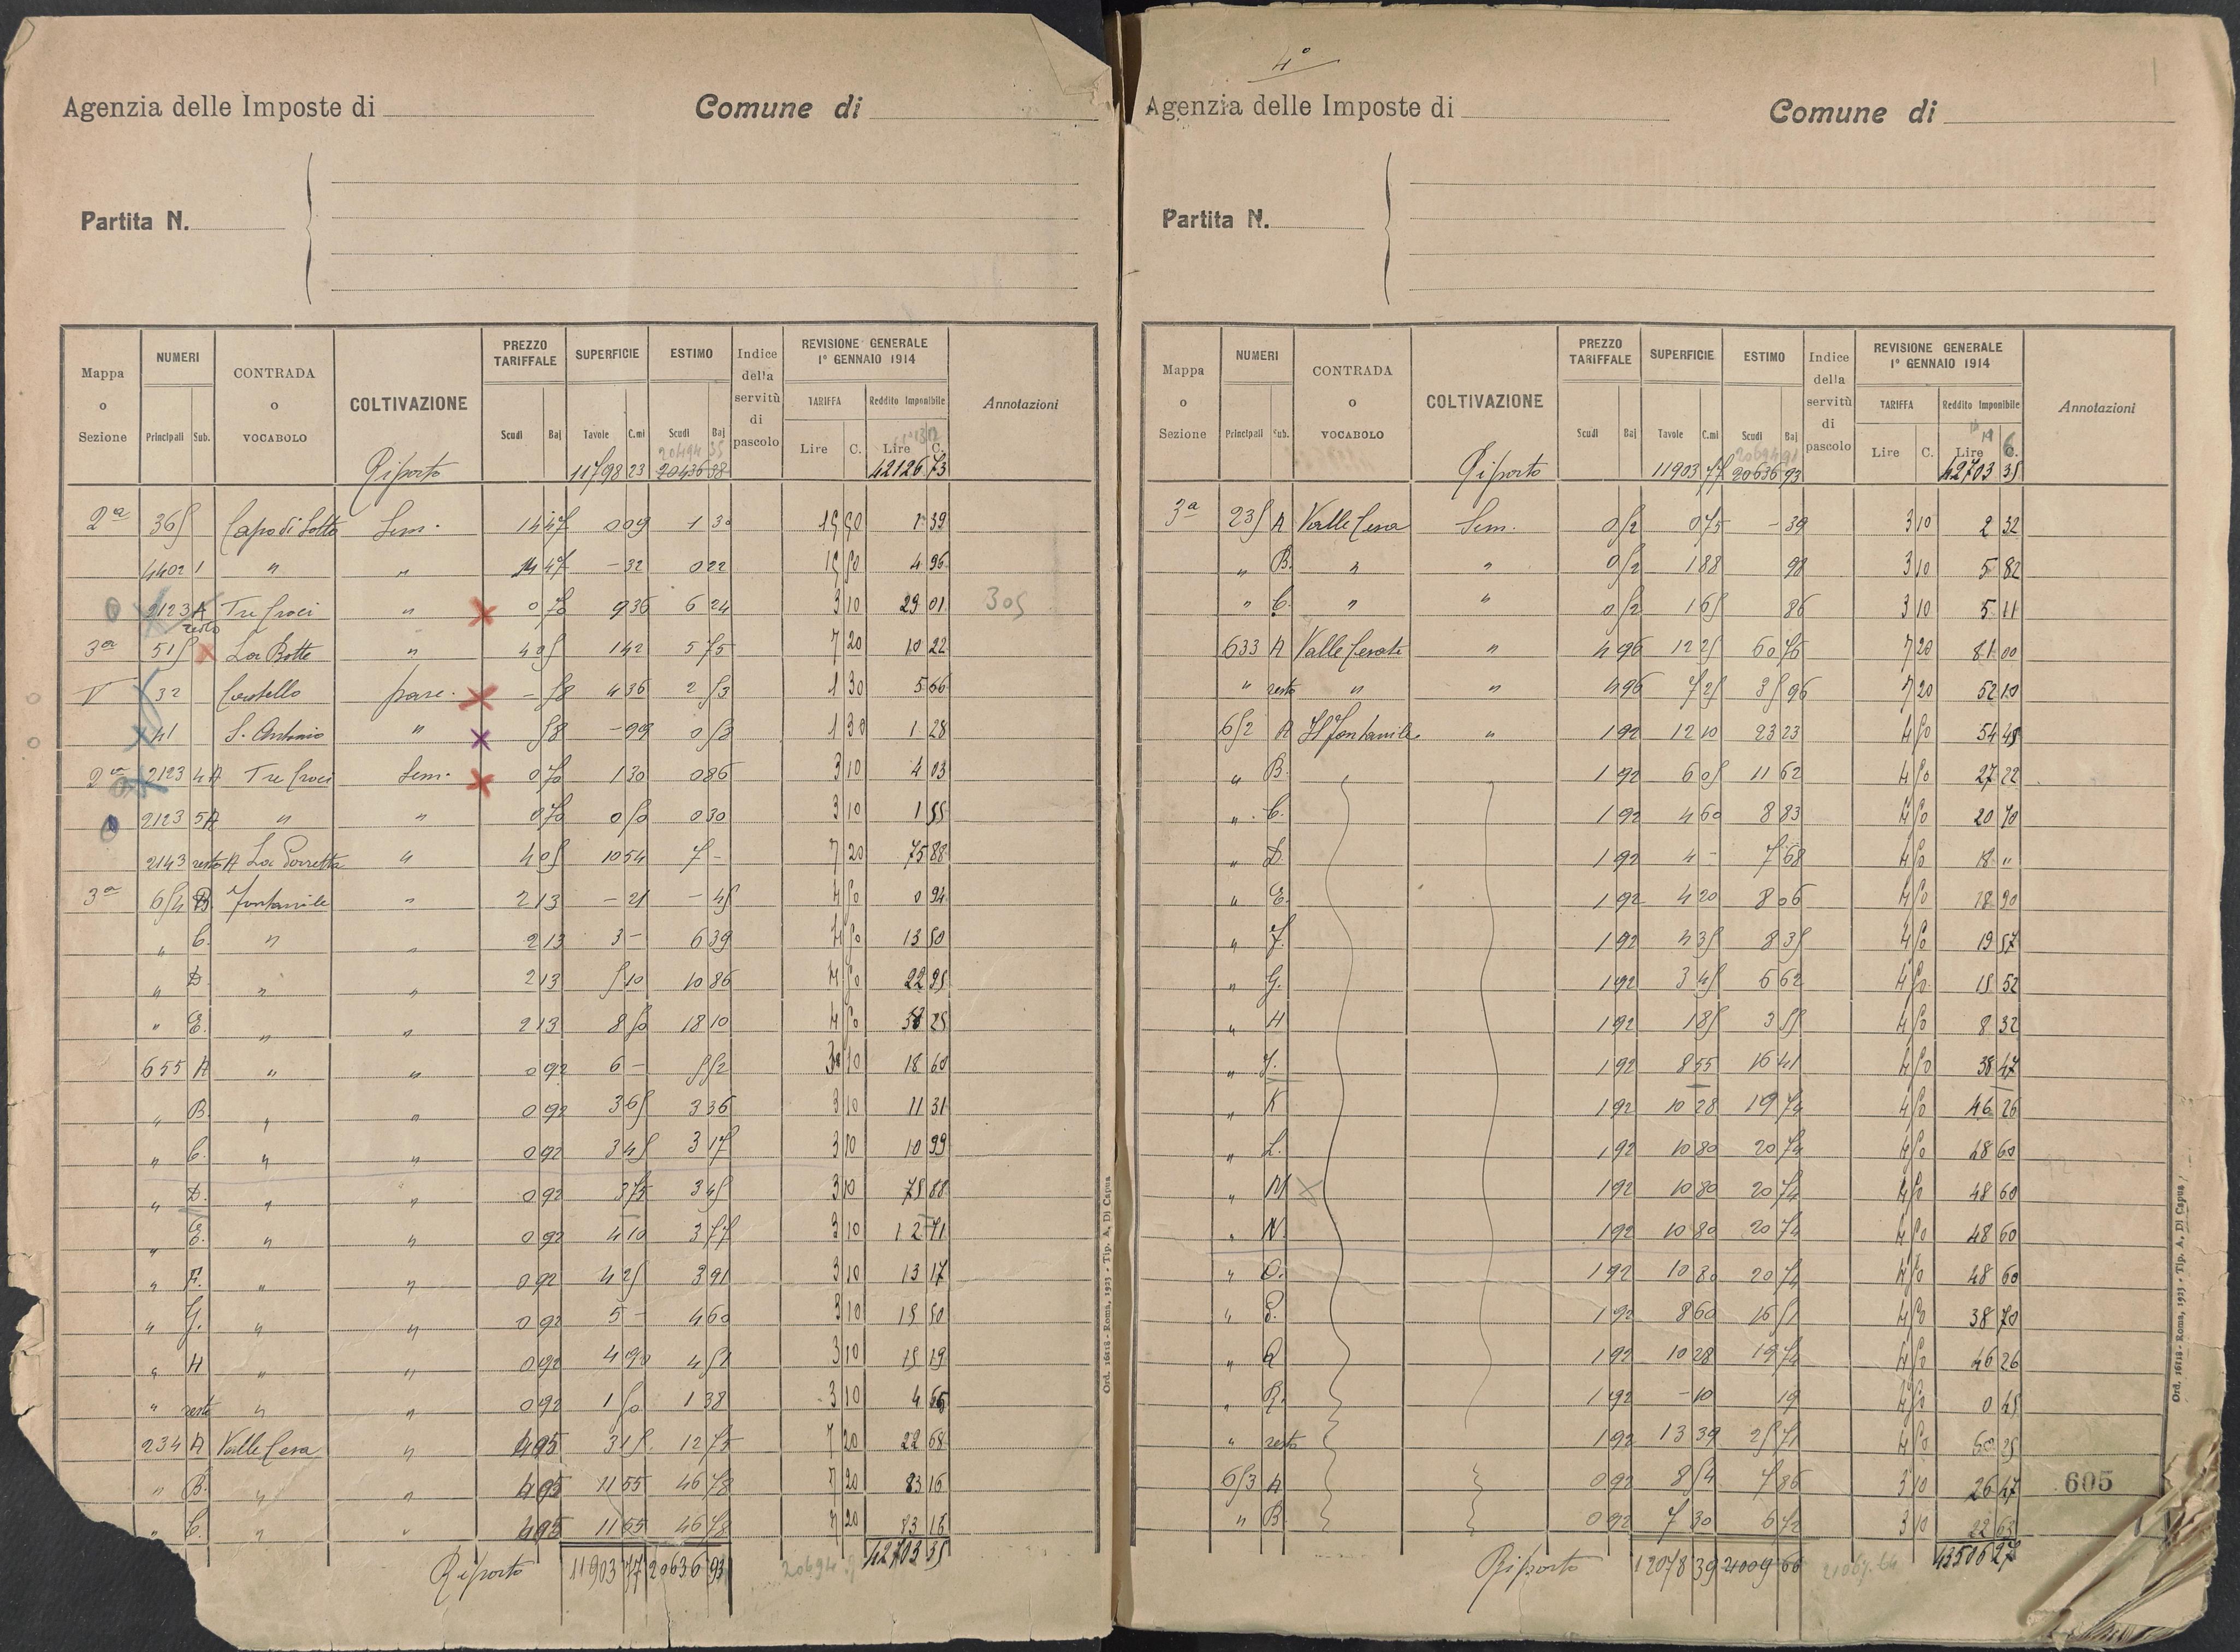 Agenzia delle Imposte di Comune di
Partita N.
Mappa o Sezione NUMERI Principali Sub. CONTRADA o VOCABOLO COLTIVAZIONE PREZZO TARIFFALE Scudi Baj SUPERFICIE Tavole C.mi ESTIMO Scudi Baj Indice della servitù di pascolo REVISIONE GENERALE 1° GENNAIO 1914 TARIFFA Lire C. Reddito Imponibile Lire C. Annotazioni
Riporto 11798 23 20436 38 42126 73
2a 365 Capo di Sotto Sem. 14 47 0 09 1 30 15 50 1 39
4402 1 " " 14 47 - 32 0 22 15 50 4 96
2123 A resto Tre Croci " 0 70 9 36 6 24 3 10 29 01 305
3a 515 La Botte " 4 05 1 42 5 75 7 20 10 22
V 32 Castello pasc. - 58 4 36 2 53 1 30 5 66
41 S. Antonio " 58 - 99 0 53 1 30 1 28
2a 2123 4A Tre Croci Sem. 0 70 1 30 0 86 3 10 4 03
2123 5A " " 0 70 0 50 0 30 3 10 1 55
2143 resto A La Torretta " 4 05 10 54 7 - 7 20 75 88
3a 654 B Fontanile " 2 13 - 21 - 45 4 50 0 94
" C. " " 2 13 3 - 6 39 4 50 13 50
" D " " 2 13 5 10 10 86 4 50 22 95
" E. " " 2 13 8 50 18 10 4 50 38 25
655 A " " 0 92 6 - 5 52 3 10 18 60
" B. " " 0 92 3 65 3 36 3 10 11 31
" C. " " 0 92 3 45 3 17 3 10 10 99
" D. " " 0 92 3 75 3 45 3 10
" E. " " 0 92 4 10 3 77 3 10 12 71
" F. " " 0 92 4 25 3 91 3 10 13 17
" G. " " 0 92 5 - 4 60 3 10 15 50
" H " " 0 92 4 90 4 51 3 10 15 19
" resto " " 0 92 1 50 1 38 3 10 4 65
234 A Valle Cesa " 4 05 3 15 12 75 7 20 22 68
" B. " " 4 05 11 55 46 78 7 20 83 16
" C. " " 4 05 11 55 46 78 7 20 83 16
Riporto 11903 77 20636 93 42703 35
Ord. 16118 - Roma, 1923 - Tip. A. Di Capua
4°
Agenzia delle Imposte di Comune di
Partita N.
Mappa o Sezione NUMERI Principali Sub. CONTRADA o VOCABOLO COLTIVAZIONE PREZZO TARIFFALE Scudi Baj SUPERFICIE Tavole C.mi ESTIMO Scudi Baj Indice della servitù di pascolo REVISIONE GENERALE 1° GENNAIO 1914 TARIFFA Lire C. Reddito Imponibile Lire C. Annotazioni
Riporto 11903 77 20636 93 42703 35
3a 235 A Valle Cesa Sem. 0 52 0 75 - 39 3 10 2 32
" B. " " 0 52 1 88 98 3 10 5 82
" C. " " 0 52 1 65 86 3 10 5 11
633 A Valle Cerate " 4 96 12 25 60 76 7 20 81 00
" resto " " 4 96 7 25 35 96 7 20 52 10
652 A Il Fontanile " 1 92 12 10 23 23 4 50 54 45
" B. 1 92 6 05 11 62 4 50 27 22
" C. 1 92 4 60 8 83 4 50 20 70
" D 1 92 4 - 7 68 4 50 18 "
" E. 1 92 4 20 8 06 4 50 18 90
" F. 1 92 4 35 8 35 4 50 19 57
" G. 1 92 3 45 6 62 4 50 15 52
" H 1 92 1 85 3 55 4 50 8 32
" J. 1 92 8 55 16 41 4 50 38 47
" K 1 92 10 28 19 74 4 50 46 26
" L. 1 92 10 80 20 74 4 50 48 60
" M 1 92 10 80 20 74 4 50 48 60
" N. 1 92 10 80 20 74 4 50 48 60
" O. 1 92 10 80 20 74 4 50 48 60
" P. 1 92 8 60 16 51 4 50 38 70
" Q 1 92 10 28 19 74 4 50 46 26
" R. 1 92 - 10 19 4 50 0 45
" resto 1 92 13 39 25 71 4 50 60 25
653 A 0 92 8 54 7 86 3 10 26 47 605
" B. 0 92 7 30 6 72 3 10 22 63
Riporto 12078 39 21009 66 43506 27
Ord. 16118 - Roma, 1923 - Tip. A. Di Capua